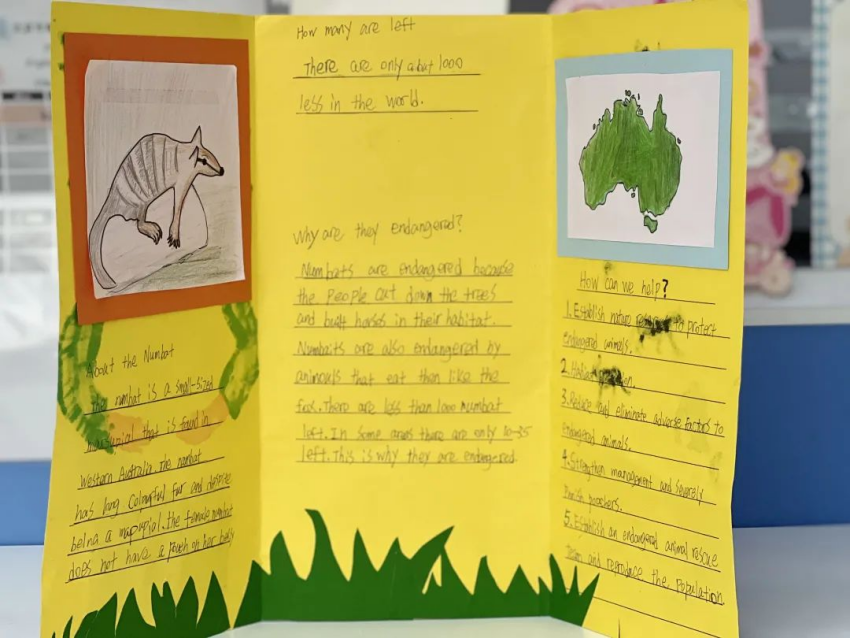 About the Numbat
the numbat is a small-sized
marsupial that is found in
Western Australia. the numbat
has long Colourful fur and despite
being a marsupial. the female numbat
does not have a pouch on her belly
How many are left
There are only about 1000
less in the world.
Why are they endangered?
Numbats are endangered because
the People cut down the trees
and built horses in their habitat.
Numbaits are also endangered by
animals that eat than like the
fox. There are less than 1000 numbat
left. In some areas there are only 10-35
left. This is why they are endangered.
How can we help?
1. Establish nature to protect
endangered animals.
2.
3. Reduce and eliminate adverse factors to
endangered animals.
4. Strengthen management and severely
Punish poachers.
5. Establish an endangered animal rescue
Team and reproduce the Population